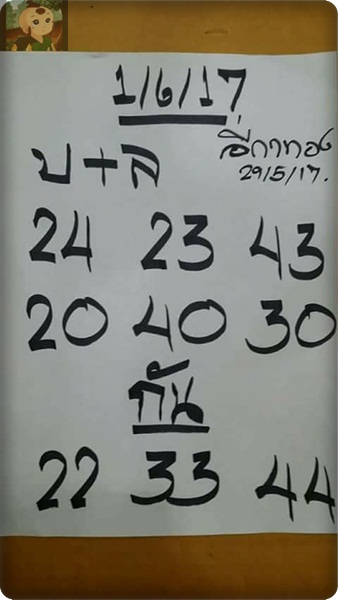 1/6/17
อีกาทอง
29/5/17.
บ+ล
24 23 43
20 40 30
กัน
22 33 44